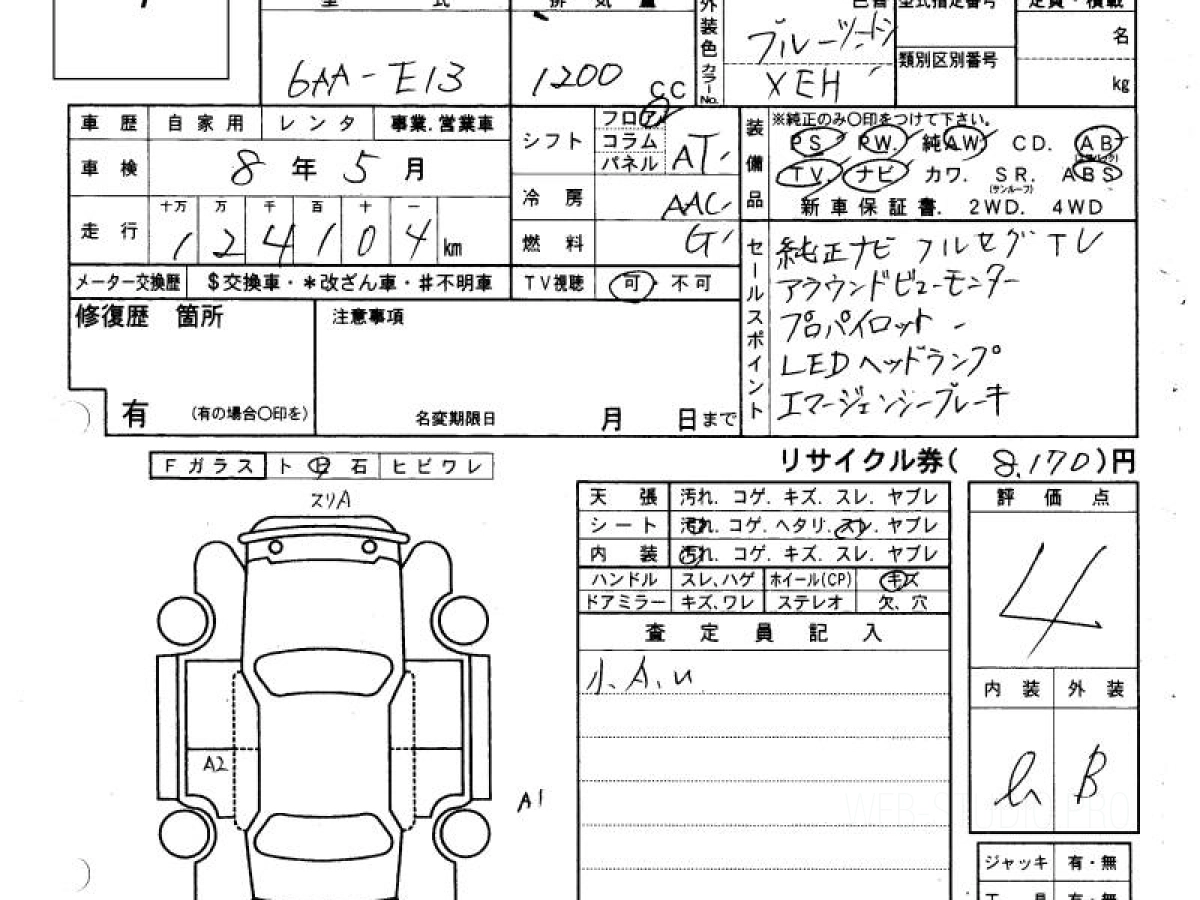 型 式 排 気 量 外装色 色替 型式指定番号 定員・積載
6AA-E13 1200 CC カラーNo. ブルーツートン 名
XEH 類別区別番号 kg
車 歴 自 家 用 レ ン タ 事業.営業車
シフト フロア コラム パネル AT
装備品 ※純正のみ〇印をつけて下さい。
PS PW. 純AW CD. AB
(エアバック)
TV ナビ カワ. SR. ABS
(サンルーフ)
新車保証書. 2WD. 4WD
車 検 8 年 5 月
冷 房 AAC
走 行 十万 万 千 百 十 一
1 2 4 1 0 4 km
燃 料 G
メーター交換歴 $交換車・*改ざん車・#不明車
TV視聴 可・不可
セールスポイント
純正ナビ フルセグTV
アラウンドビューモニター
プロパイロット
LEDヘッドランプ
エマージェンシーブレーキ
修復歴 箇所
有 (有の場合〇印を)
注意事項
名変期限日 月 日まで
リサイクル券( 8,170 )円
Fガラス ト 日 石 ヒビワレ
スリA
A2
A1
天 張 汚れ. コゲ. キズ. スレ. ヤブレ
シート 汚れ. コゲ. ヘタリ. スレ. ヤブレ
内 装 汚れ. コゲ. キズ. スレ. ヤブレ
ハンドル スレ、ハゲ ホイール(CP) キズ
ドアミラー キズ、ワレ ステレオ 欠、穴
査 定 員 記 入
小.A.u
評 価 点
4
内 装 外 装
B
WEB STUDIO PRO
ジャッキ 有・無
工 具 有・無